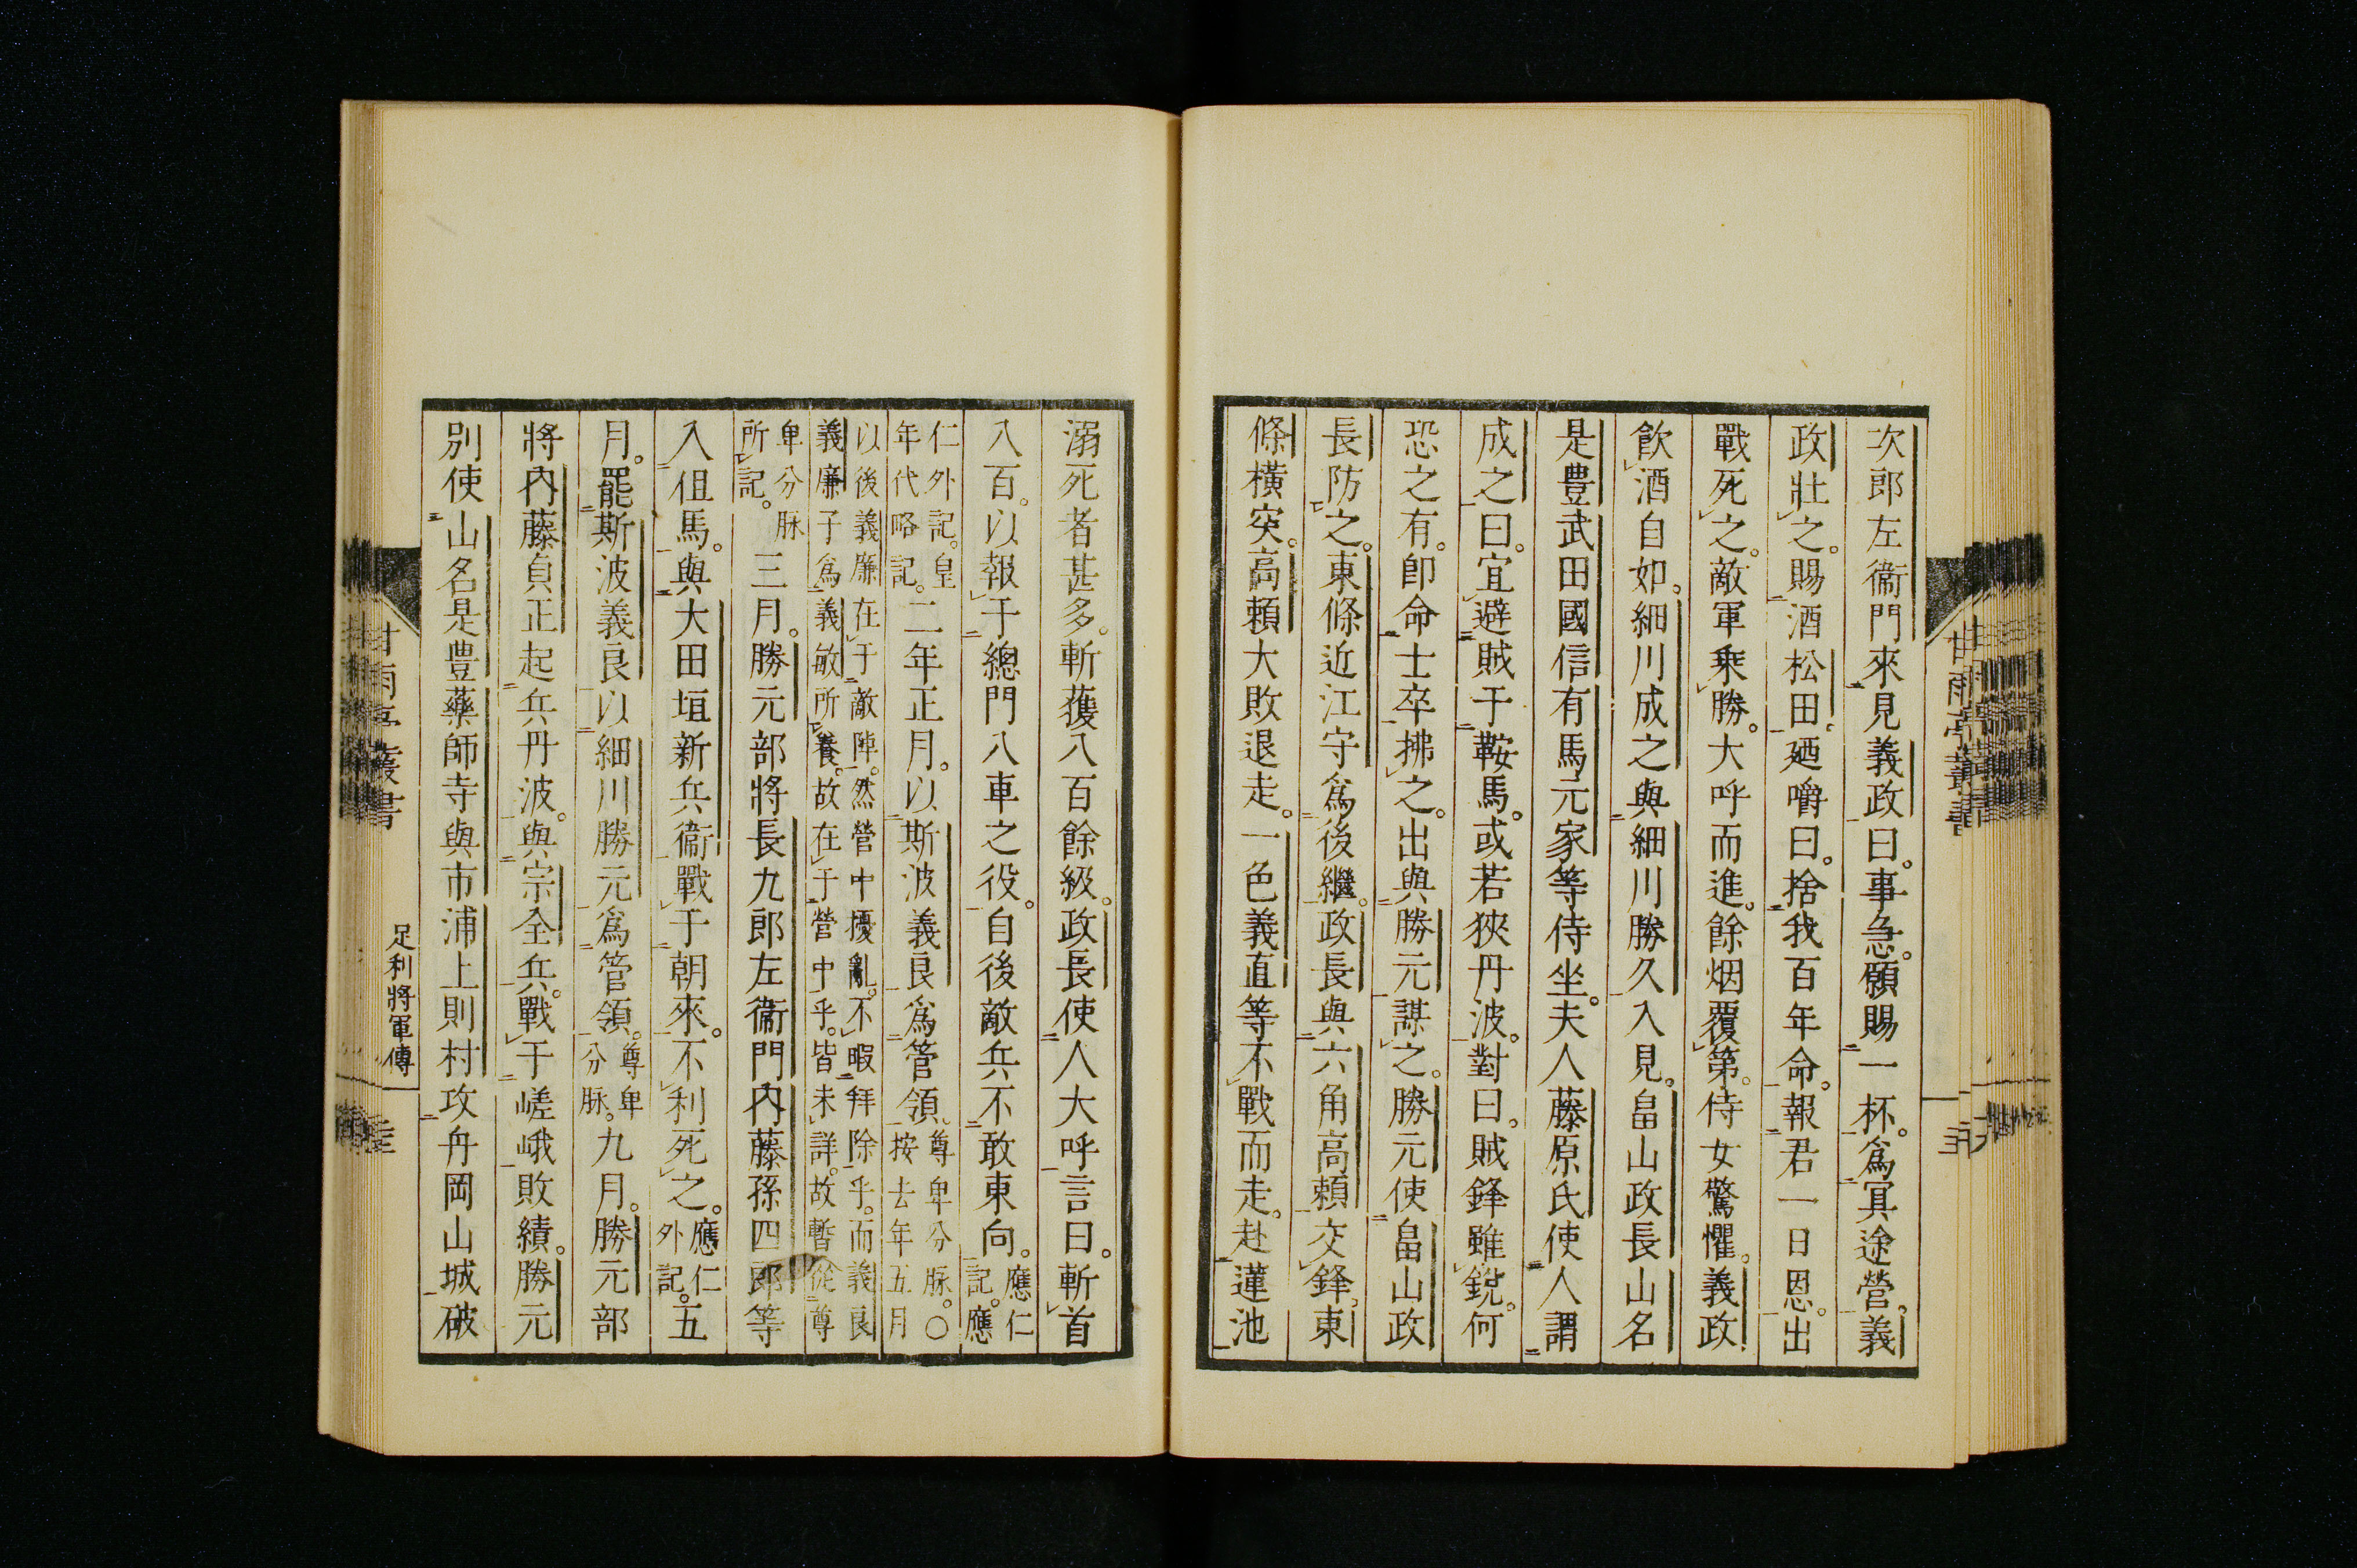 次郎左衞門來見義政曰。事急。願賜一杯。爲冥途營。義
政壯之。賜酒松田。廼嚼曰。捨我百年命。報君一日恩。出
戰死之。敵軍乘勝。大呼而進。餘烟覆第。侍女驚懼。義政
飮酒自如。細川成之與細川勝久入見。畠山政長山名
是豊武田國信有馬元家等侍坐。夫人藤原氏使人謂
成之曰。宜避賊于鞍馬。或若狹丹波。對曰。賊鋒雖銳。何
恐之有。卽命士卒拂之。出與勝元謀之。勝元使畠山政
長防之。東條近江守爲後繼。政長與六角高賴交鋒。東
條橫突。高賴大敗退走。一色義直等不戰而走。赴蓮池
溺死者甚多。斬獲八百餘級。政長使人大呼言曰。斬首
八百。以報于總門八車之役。自後敵兵不敢東向。應仁記。應
仁外記。皇年代略記。二年正月。以斯波義良爲管領。尊卑分脉。〇按去年五月
以後義廉在于敵陣。然營中擾亂。不暇拜除乎。而義良義廉子爲義敏所養。故在于營中乎。皆未詳。故暫從尊
卑分脉所記。三月。勝元部將長九郎左衞門內藤孫四郎等
入但馬。與大田垣新兵衞戰于朝來。不利死之。應仁外記。五
月。罷斯波義良以細川勝元爲管領。尊卑分脉。九月。勝元部
將內藤貞正起兵丹波。與宗全兵。戰于嵯峨敗績。勝元
別使山名是豊藥師寺與市浦上則村攻舟岡山城破
足利將軍傳
甘雨亭叢書